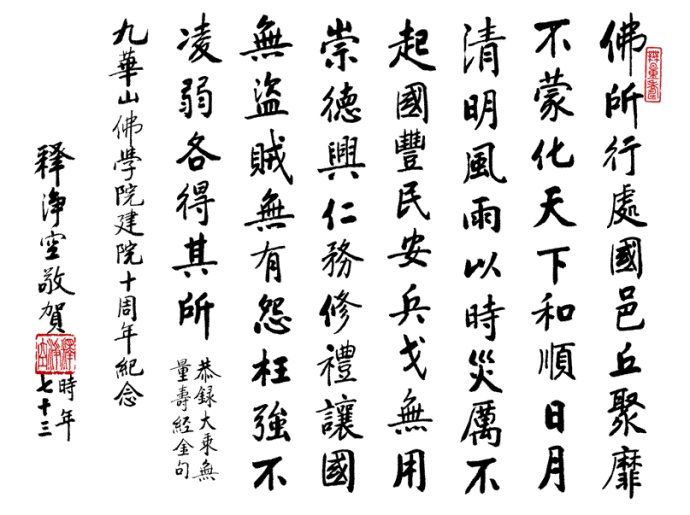 佛所行處國邑丘聚靡
不蒙化天下和順日月
清明風雨以時災厲不
起國豐民安兵戈無用
崇德興仁務修禮讓國
無盜賊無有怨枉強不
凌弱各得其所
恭録大乘無
量壽経金句
九華山佛學院建院十周年紀念
釋淨空敬賀
時年
七十三